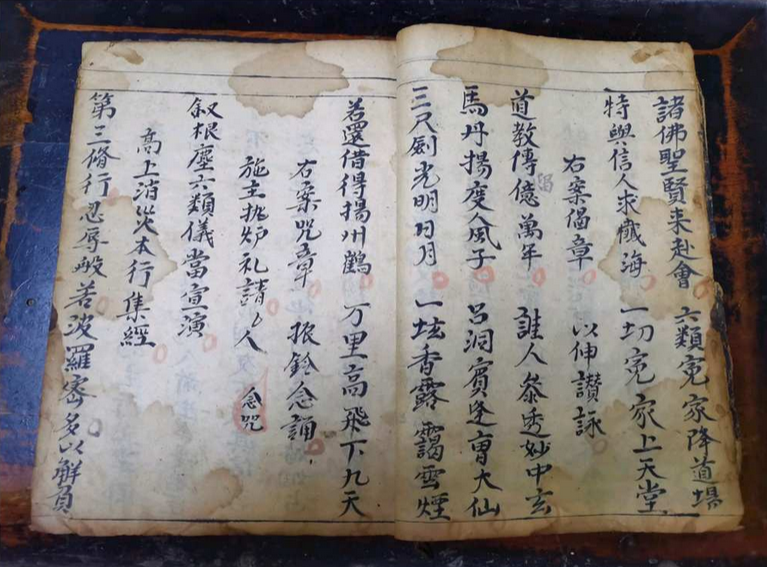 諸佛聖賢来赴會 六類寃家降道場
特與信人求懺海 一切寃家上天堂
右案偈章 以伸讃詠
道教傳億萬年 誰人叅透妙中玄
馬丹揚度人風子 吕洞賓逢曹大仙
三尺劍光明日月 一坛香露靄雲煙
若還借得揚州鶴 万里高飛下九天
右案咒章 振鈴念誦
施主執炉礼請 人 念咒
叙根塵六類儀當宣演
高上消灾本行集經
第三脩行忍辱般若波羅宻多以解